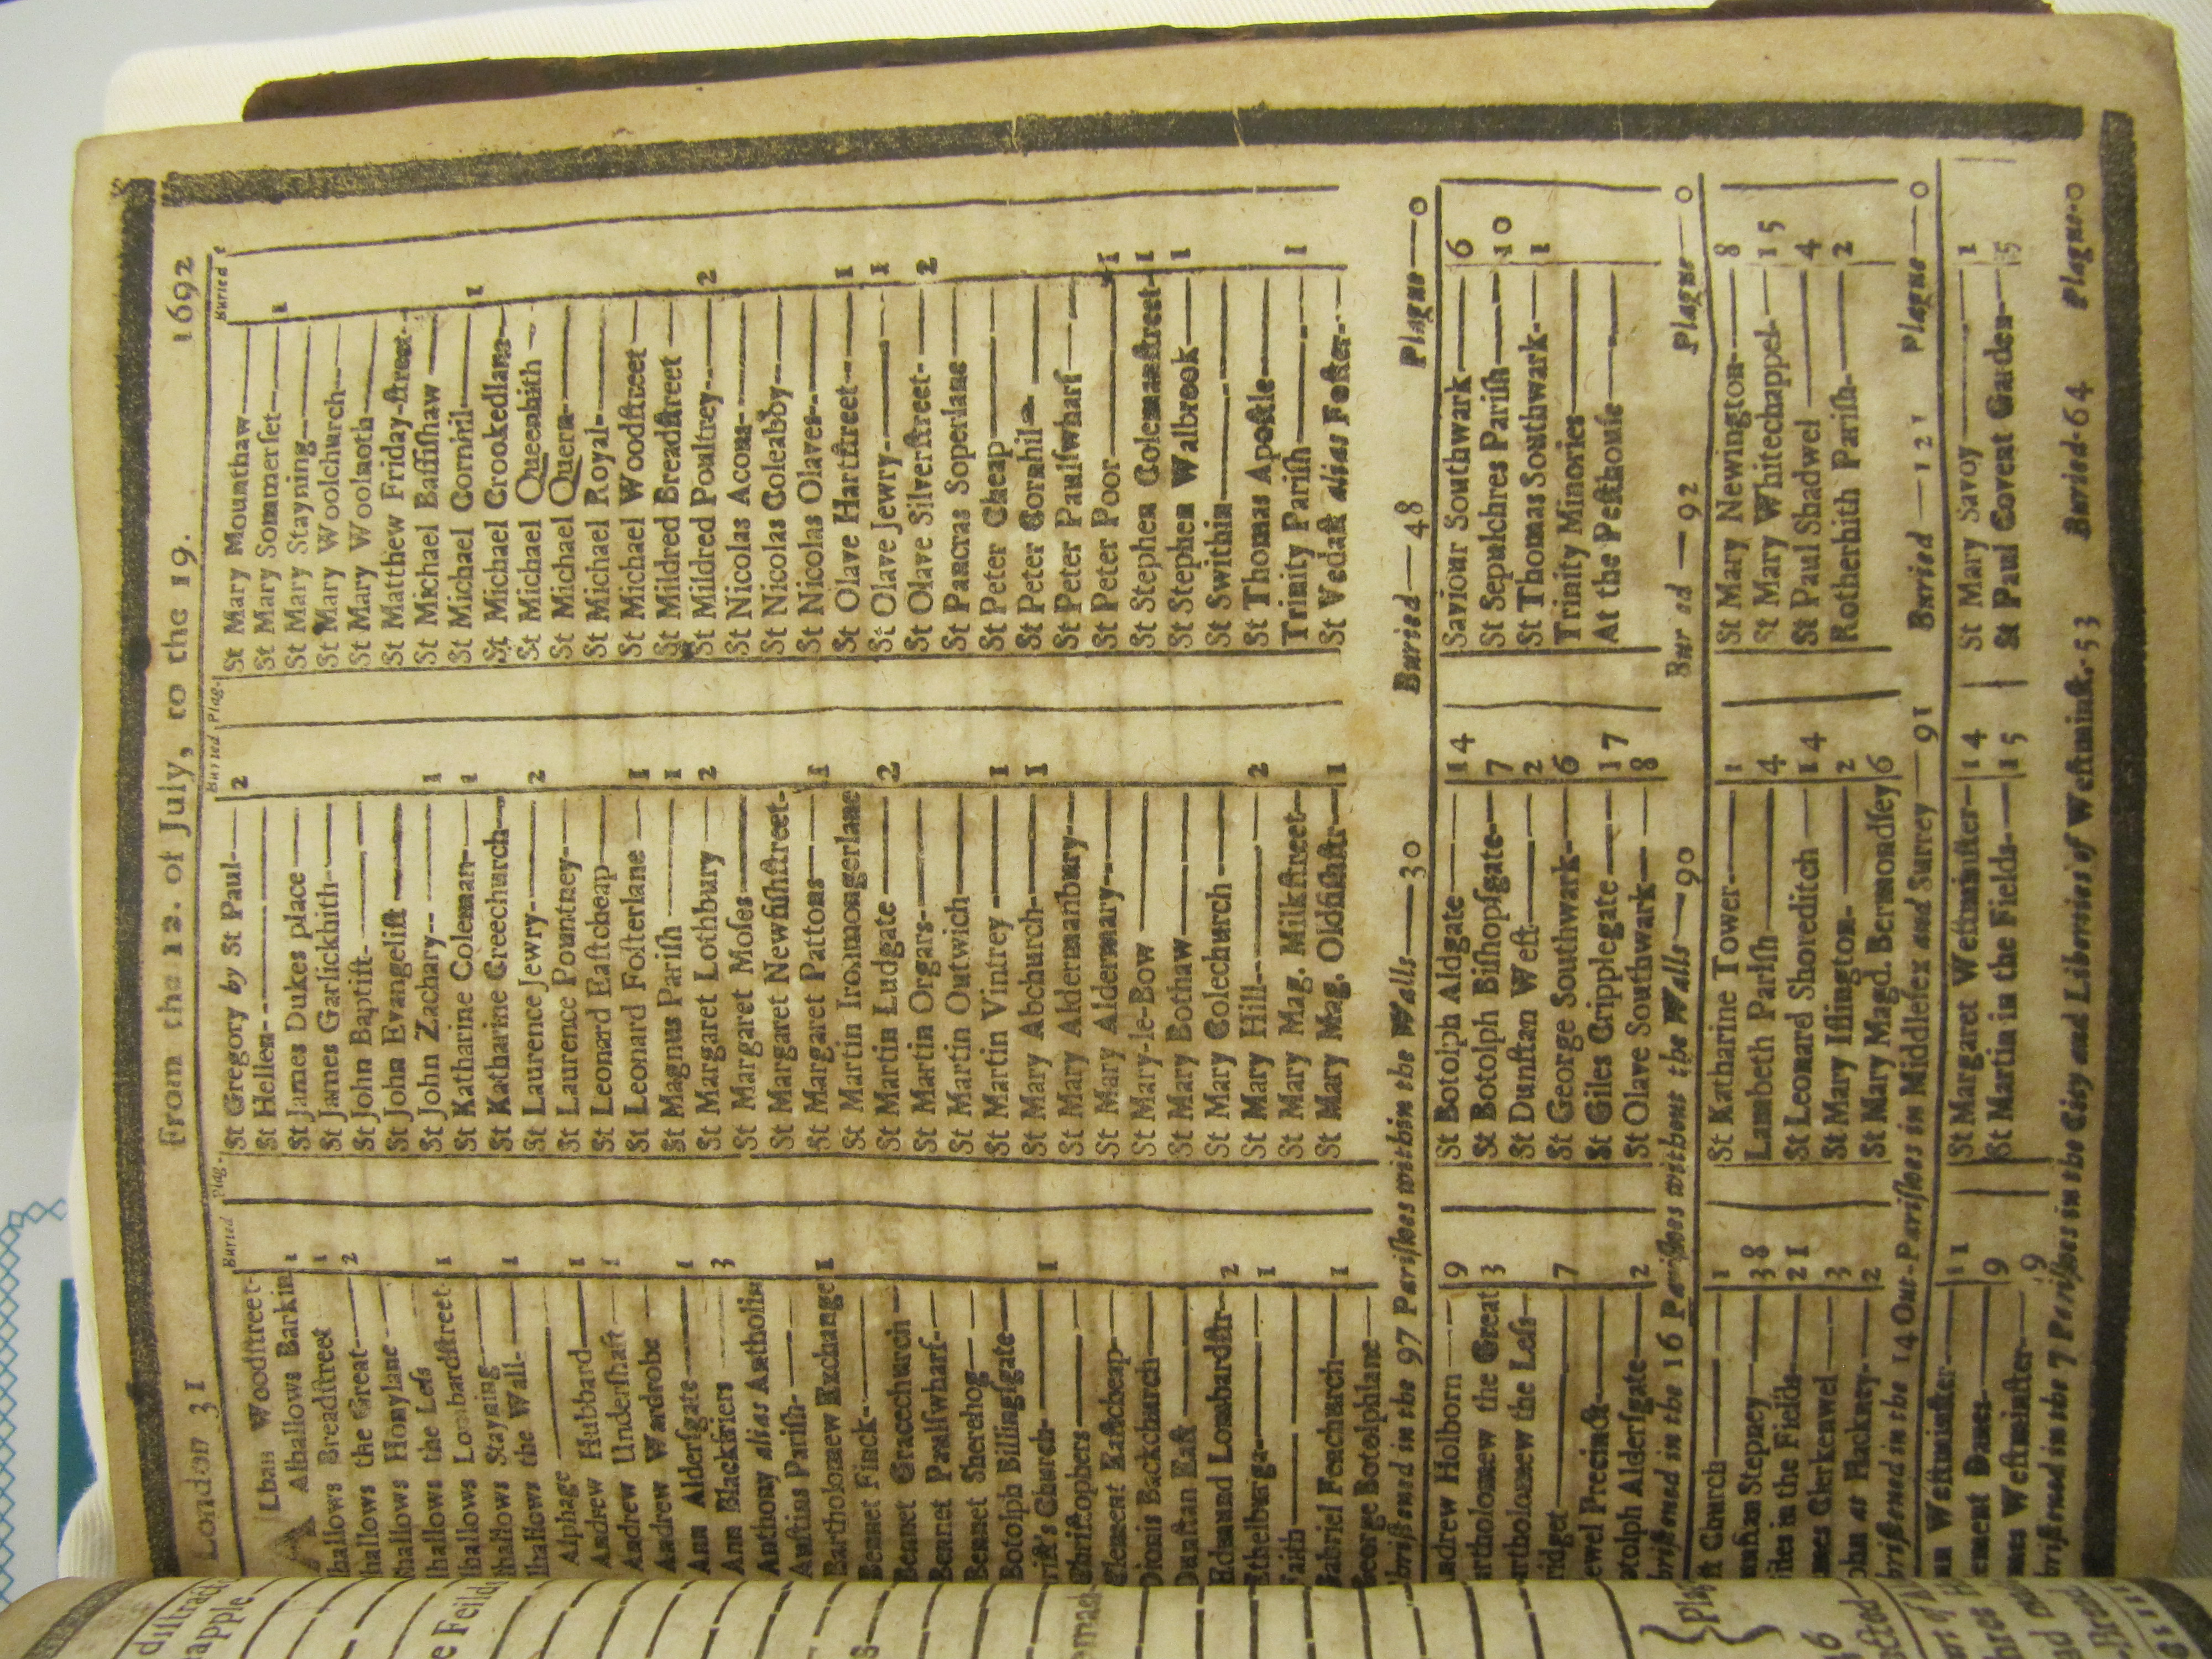 London 31 From the 12. of July, to the 19. 1692
Buried Plag.
ALban Woodſtreet
Alhallows Barkin 1
lhallows Breadſtreet 1
lhallows the Great 2
lhallows Honylane
lhallows the Leſs
lhallows Lombardſtreet 1
lhallows Stayning
lhallows the Wall 1
Alphage
Andrew Hubbard 1
Andrew Underſhaft 1
Andrew Wardrobe
Ann Alderſgate 1
Ann Blackfriers 3
Anthony alias Antholin
Auſtins Pariſh
Bartholomew Exchange 1
Bennet Finck
Bennet Gracechurch
Bennet Paulſwharf
Bennet Sherehog
Botolph Billingſgate
riſt's Church 1
Chriſtophers
Clement Eaſtcheap
Dionis Backchurch
Dunſtan Eaſt
Edmund Lombardſtr 2
Ethelburga 1
Faith
Gabriel Fenchurch 1
George Botolphlane
Buried Plag.
St Gregory by St Paul 2
St Hellen
St James Dukes place
St James Garlickhith
St John Baptiſt
St John Evangeliſt
St John Zachary 1
St Katharine Coleman 1
St Katharine Creechurch
St Laurence Jewry 2
St Laurence Pountney
St Leonard Eaſtcheap
St Leonard Foſterlane 1
St Magnus Pariſh 1
St Margaret Lothbury 2
St Margaret Moſes
St Margaret Newfiſhſtreet
St Margaret Pattons 1
St Martin Ironmongerlane
St Martin Ludgate 2
St Martin Orgars
St Martin Outwich
St Martin Vintrey 1
St Mary Abchurch 1
St Mary Aldermanbury
St Mary Aldermary
St Mary-le-Bow
St Mary Bothaw
St Mary Colechurch
St Mary Hill 2
St Mary Mag. Milkſtreet
St Mary Mag. Oldfiſhſtr 1
Buried
St Mary Mounthaw
St Mary Sommerſet 1
St Mary Stayning
St Mary Woolchurch
St Mary Woolnoth
St Matthew Friday-ſtreet
St Michael Baſſiſhaw
St Michael Cornhil 1
St Michael Crookedlane
St Michael Queenhith
St Michael Quern
St Michael Royal
St Michael Woodſtreet
St Mildred Breadſtreet
St Mildred Poultrey 2
St Nicolas Acons
St Nicolas Coleabby
St Nicolas Olaves
St Olave Hartſtreet 1
St Olave Jewry 1
St Olave Silverſtreet 2
St Pancras Soperlane
St Peter Cheap
St Peter Cornhil
St Peter Paulſwharf
St Peter Poor 1
St Stephen Colemanſtreet 1
St Stephen Walbrook 1
St Swithin
St Thomas Apoſtle
Trinity Pariſh 1
St Vedaſt alias Foſter
briſtened in the 97 Pariſhes within the Walls 30 Buried 48 Plague 0
Andrew Holborn 9
artholomew the Great 3
artholomew the Leſs
ridget 7
ewel Precinct
otolph Alderſgate 2
St Botolph Aldgate 14
St Botolph Biſhopſgate 7
St Dunſtan Weſt 2
St George Southwark 6
St Giles Cripplegate 17
St Olave Southwark 8
Saviour Southwark 6
St Sepulchres Pariſh 10
St Thomas Southwark 1
Trinity Minories
At the Peſthouſe
briſtened in the 16 Pariſhes without the Walls 90 Buried 92 Plague 0
ſt Church 1
unſtan Stepney 38
iles in the Fields 21
mes Clerkenwel 3
ohn at Hackney 2
St Katharine Tower 1
Lambeth Pariſh 4
St Leonard Shoreditch 14
St Mary Iſlington 2
St Mary Magd. Bermondſey 6
St Mary Newington 8
St Mary Whitechappel 15
St Paul Shadwel 4
Rotherhith Pariſh 2
briſtened in the 14 Out-Pariſhes in Middleſex and Surrey 91 Buried 121 Plague 0
an Weſtminſter 11
ement Danes 9
mes Weſtminſter 9
St Margaret Weſtminſter 14
St Martin in the Fields 15
St Mary Savoy 1
St Paul Covent Garden 5
briſtened in the 7 Pariſhes in the City and Liberties of Weſtminſt. 53 Buried 64 Plague 0